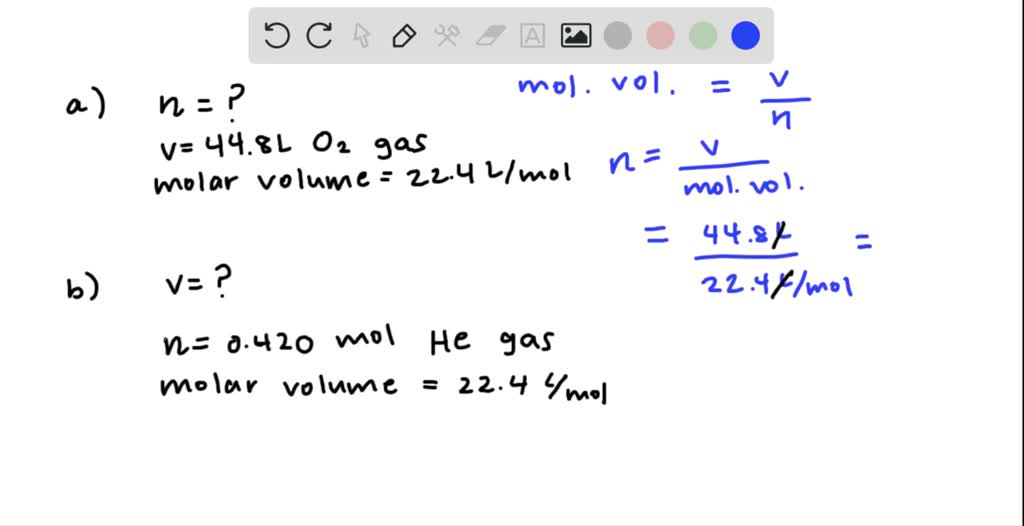 a) n = ?
v = 44.8L O₂ gas
molar volume = 22.4 L/mol
mol. vol. = v/n
n = v/mol. vol.
= 44.8L/22.4L/mol =
b) v = ?
n = 0.420 mol He gas
molar volume = 22.4 L/mol